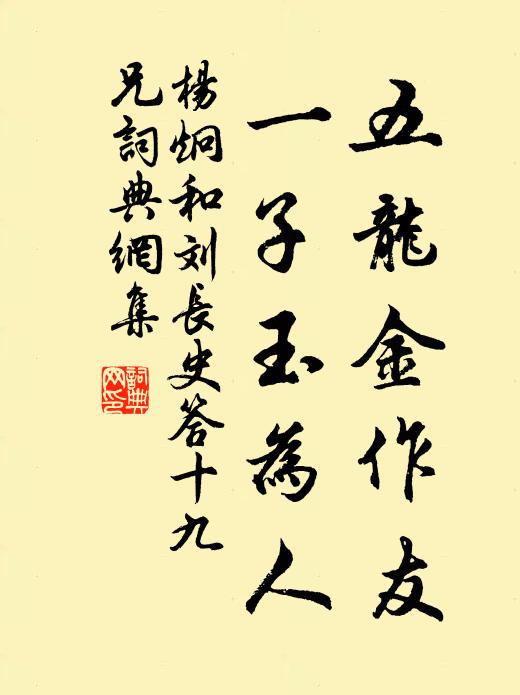 五龍金作友
一子玉為人
楊炯和刘長史答十九
兄詞典網集
詞典
网印